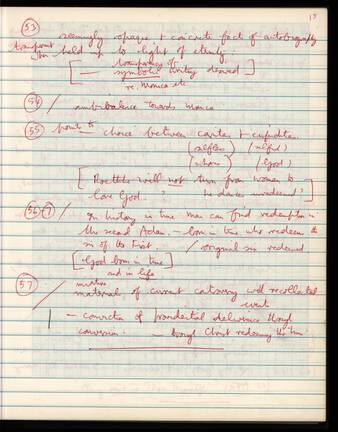 17
(53) seemingly opaque + concrete fact of autobiography
transparent held up to light of eternity.
[ transparency of
— symbolic writing denied ]
re. Monica etc
(54) / ambivalence towards Monica
(55) points to choice between caritas + cupiditas
(selfless) (selfish)
(whore) (God)
[ will not turn from women to
love God. ? he dances undeceived? ]
(56-7) / In history in time man can find redemption in
the second Adam — born in time who redeems the
sin of the first. / original sin redeemed
[ God born in time ]
and in life
(57) / material of current with recollected
event
| — conviction of providential deliverance through
conversion. — through Christ redeeming the time